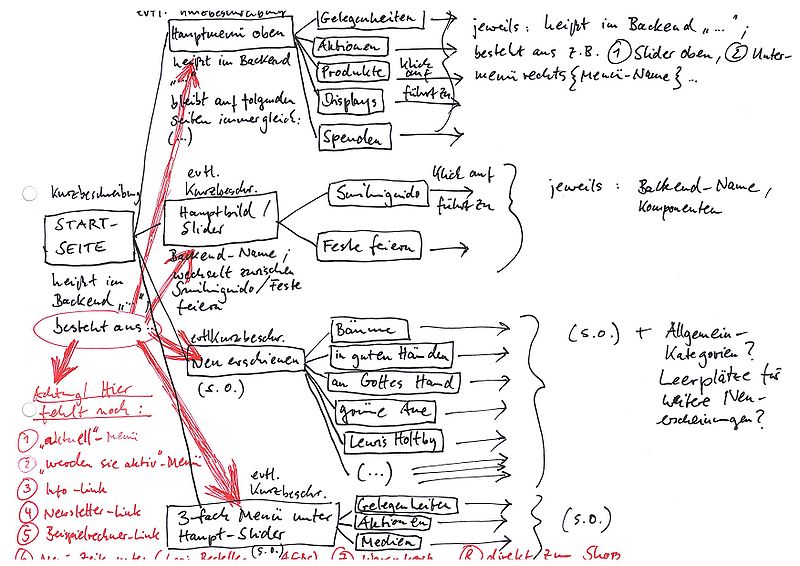 evtl. Kurzbeschreibung
Hauptmenü oben
heißt im Backend
„..."
bleibt auf folgenden
Seiten immer gleich:
(...)
Gelegenheiten
Aktionen
Produkte
Displays
Spenden
Klick
auf
führt zu
jeweils: heißt im Backend „...";
besteht aus z.B. ① Slider oben, ② Unter-
menü rechts {Menü-Name} ...
Kurzbeschreibung
START-
SEITE
heißt im
Backend „..."
besteht aus:
evtl.
Kurzbeschr.
Hauptbild/
Slider
Backend-Name;
wechselt zwischen
Smilinguido/Feste
feiern
Smilinguido
Feste feiern
Klick auf
führt zu
jeweils: Backend-Name,
Komponenten
evtl. Kurzbeschr.
Neu erschienen
(s.o.)
Bäume
in guten Händen
an Gottes Hand
grüne Aue
Lewis Holtby
(...)
(s.o.) + Allgemein-
Kategorien?
Leerplätze für
weitere Neu-
erscheinungen?
Achtung! Hier
fehlt noch:
① „aktuell"-Menü
② „werden sie aktiv"-Menü
③ Info-Link
④ Newsletter-Link
⑤ Beispielrechner-Link
evtl.
Kurzbeschr.
3-fach Menü unter
Haupt-Slider
(s.o.)
Gelegenheiten
Aktionen
Medien
(s.o.)
⑧ direkt zum Shop